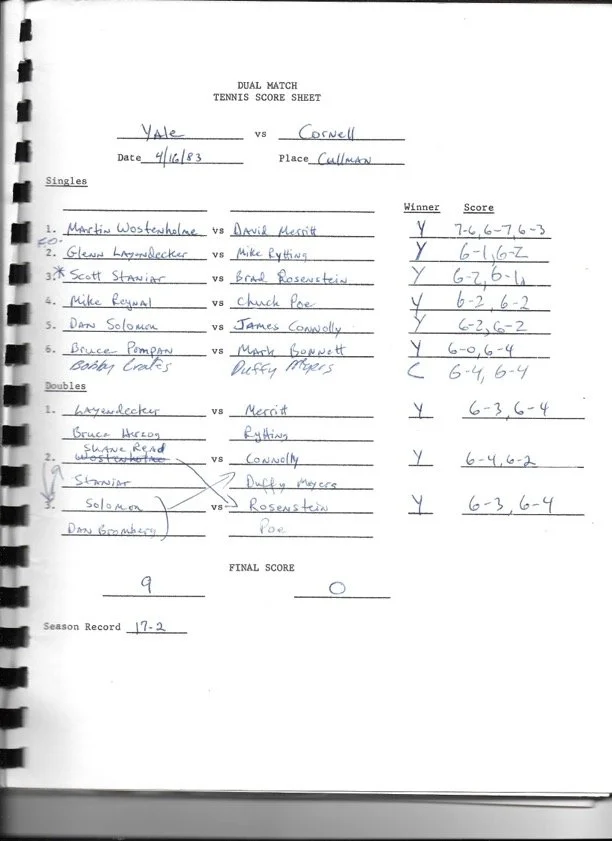 DUAL MATCH
TENNIS SCORE SHEET
Yale vs Cornell
Date 4/16/83 Place Cullman
Singles
Winner Score
1. Martin Wostenholme vs David Merritt Y 7-6, 6-7, 6-3
2. Glenn Layendecker vs Mike Rytting Y 6-1, 6-2
3. * Scott Staniar vs Brad Rosenstein Y 6-2, 6-1
4. Mike Reynal vs Chuck Poe Y 6-2, 6-2
5. Dan Solomon vs James Connolly Y 6-2, 6-2
6. Bruce Pompan vs Mark Bonnett Y 6-0, 6-4
Bobby Crates Duffy Myers C 6-4, 6-4
Doubles
1. Layendecker vs Merritt Y 6-3, 6-4
Bruce Herzog Rytting
Shane Read
2. Wostenholme vs Connolly Y 6-4, 6-2
Staniar Duffy Meyers
3. Solomon vs Rosenstein Y 6-3, 6-4
Dan Bromberg Poe
FINAL SCORE
9 0
Season Record 17-2